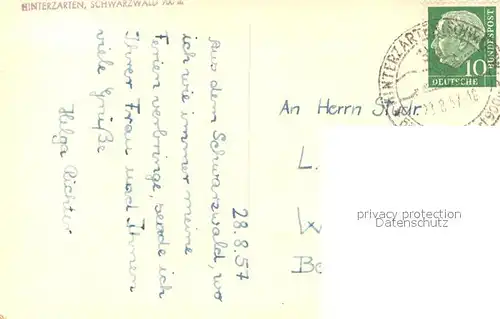 HINTERZARTEN, SCHWARZWALD 900 m
28.8.57
Aus dem Schwarzwald, wo
ich wie immer meine
Ferien verbringe, sende ich
Ihrer Frau und Ihnen
viele Grüße
Helga Richter
10
DEUTSCHE
BUNDESPOST
HINTERZARTEN
An Herrn Studr.
L
W
Be
privacy protection
VERDECKT AUS DATENSCHUTZGRÜNDEN